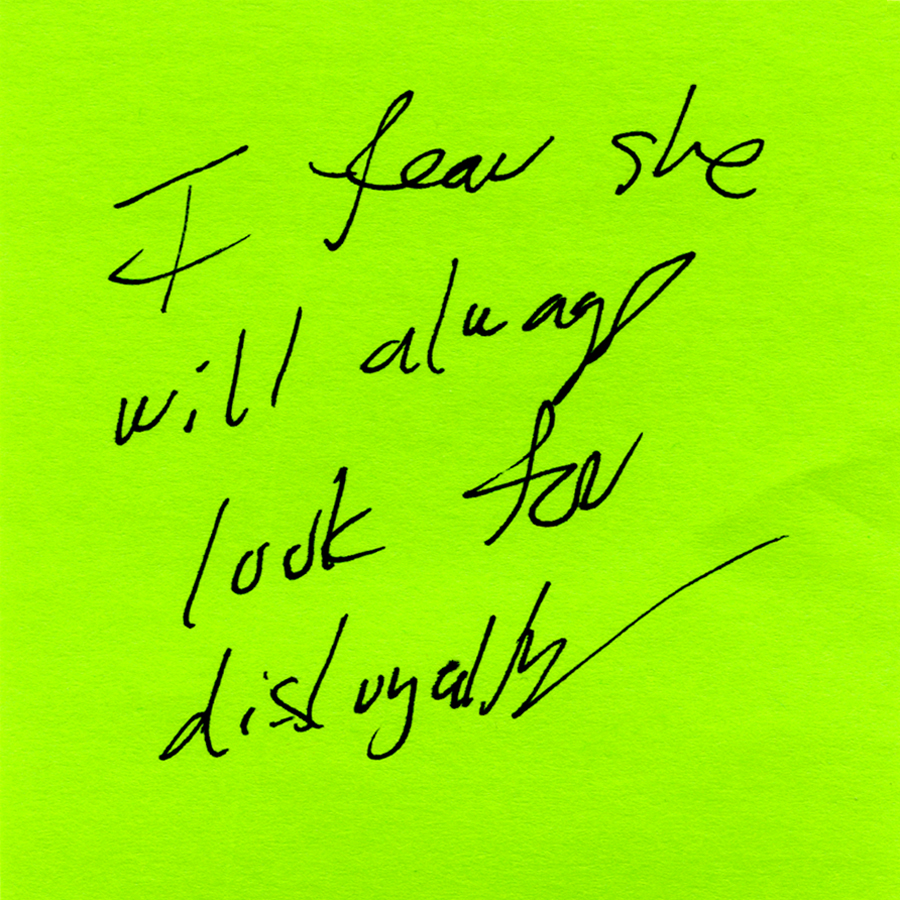 I fear she
will always
look for
disloyalty